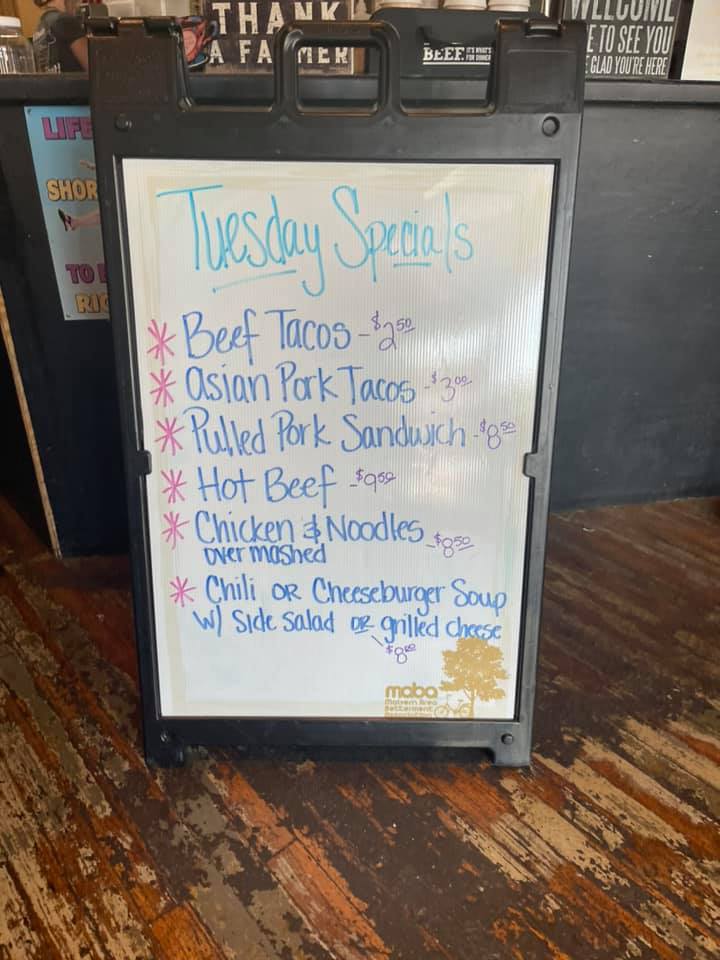 THANK
A FARMER
BEEF. IT'S WHAT'S
FOR DINNER
WELCOME
E TO SEE YOU
GLAD YOU'RE HERE
LIFE
SHOR
TO
RIG
Tuesday Specials
* Beef Tacos - $2.50
* Asian Pork Tacos - $3.00
* Pulled Pork Sandwich - $8.50
* Hot Beef - $9.50
* Chicken & Noodles - $8.50
over mashed
* Chili OR Cheeseburger Soup
w/ Side Salad OR grilled cheese
$8.00
maba
Malvern Area
Betterment
Association